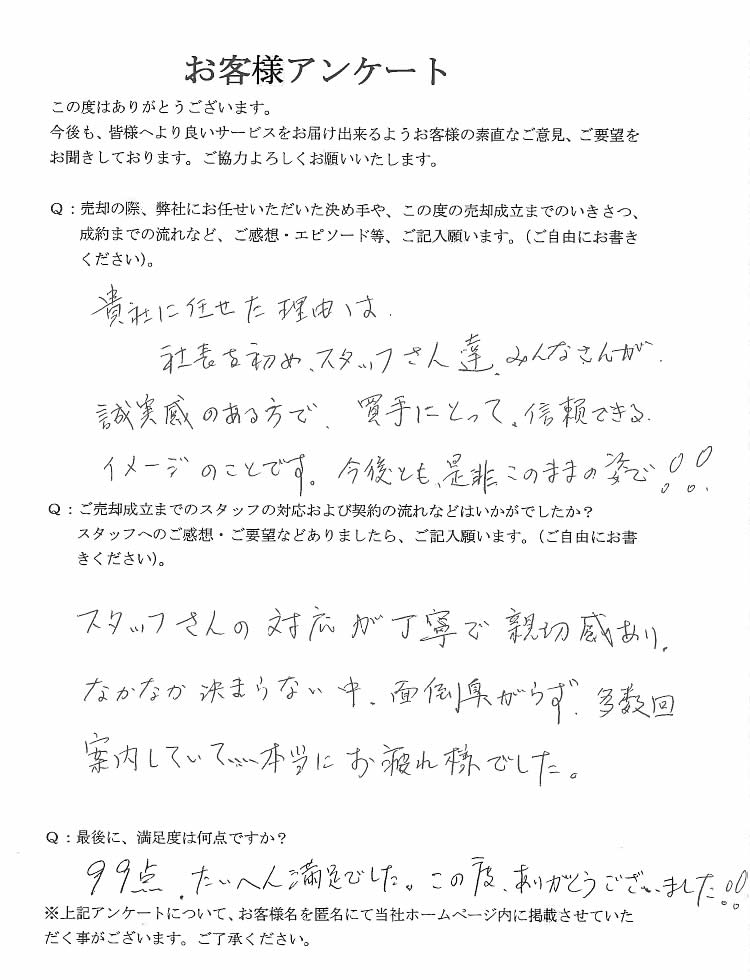 お客様アンケート
この度はありがとうございます。
今後も、皆様へより良いサービスをお届け出来るようお客様の素直なご意見、ご要望を
お聞きしております。ご協力よろしくお願いいたします。
Q：売却の際、弊社にお任せいただいた決め手や、この度の売却成立までのいきさつ、
成約までの流れなど、ご感想・エピソード等、ご記入願います。（ご自由にお書き
ください）。
貴社に任せた理由は、
社長を初め、スタッフさん達、みんなさんが、
誠実感のある方で、買手にとって、信頼できる
イメージのことです。今後とも、是非このままの姿で!!
Q：ご売却成立までのスタッフの対応および契約の流れなどはいかがでしたか？
スタッフへのご感想・ご要望などありましたら、ご記入願います。（ご自由にお書
きください）。
スタッフさんの対応が丁寧で親切感あり、
なかなか決まらない中、面倒臭がらず、多数回
案内していて……本当にお疲れ様でした。
Q：最後に、満足度は何点ですか？
99点、たいへん満足でした。この度、ありがとうございました!!
※上記アンケートについて、お客様名を匿名にて当社ホームページ内に掲載させていた
だく事がございます。ご了承ください。